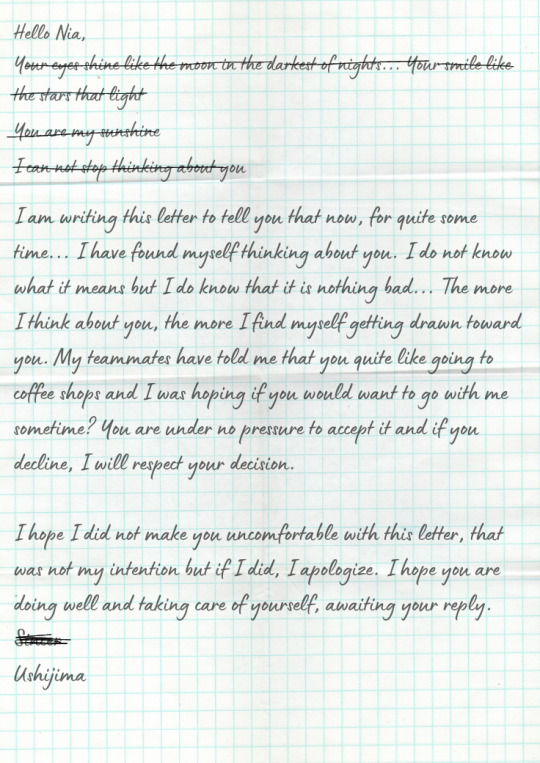 Hello Nia,
Your eyes shine like the moon in the darkest of nights... Your smile like
the stars that light
You are my sunshine
I can not stop thinking about you
I am writing this letter to tell you that now, for quite some
time... I have found myself thinking about you. I do not know
what it means but I do know that it is nothing bad... The more
I think about you, the more I find myself getting drawn toward
you. My teammates have told me that you quite like going to
coffee shops and I was hoping if you would want to go with me
sometime? You are under no pressure to accept it and if you
decline, I will respect your decision.
I hope I did not make you uncomfortable with this letter, that
was not my intention but if I did, I apologize. I hope you are
doing well and taking care of yourself, awaiting your reply.
Ushijima